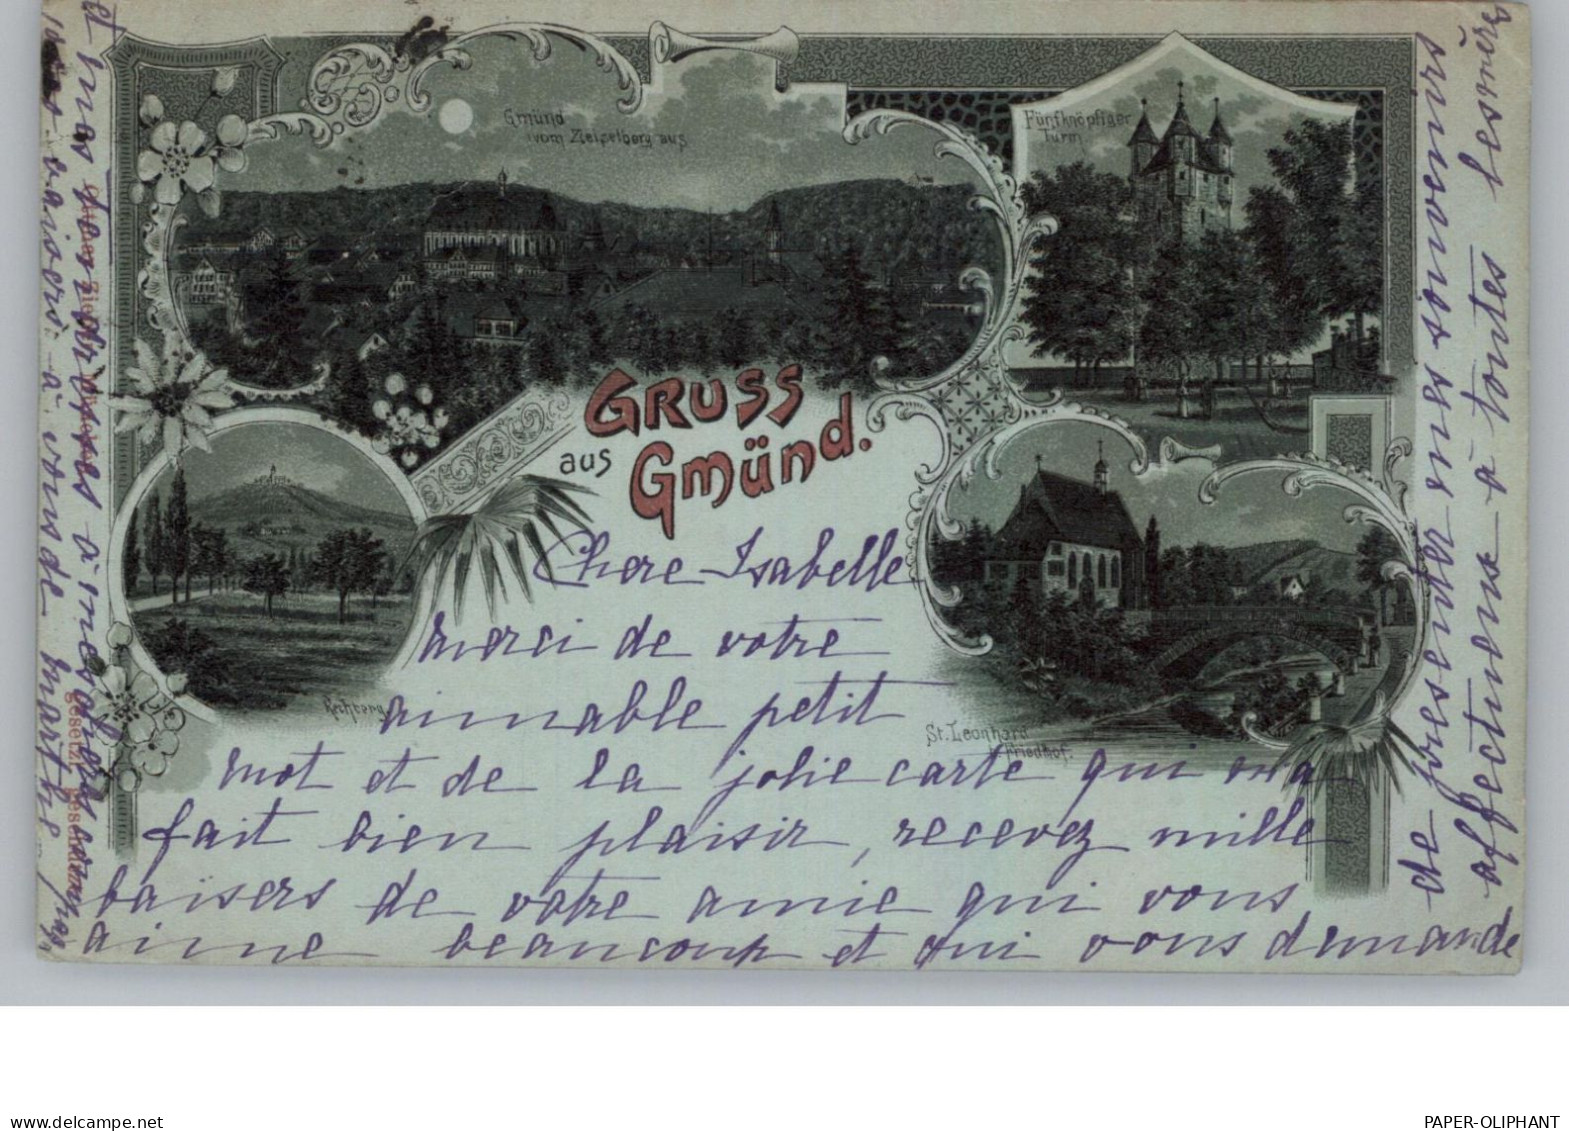 Gmünd
vom Zeiselberg aus
Fünfknöpfiger
Turm
GRUSS
aus Gmünd.
Rechberg
St. Leonhard
Friedhof.
Chere Isabelle
merci de votre
aimable petit
mot et de la jolie carte qui m'a
fait bien plaisir, recevez mille
baisers de votre amie qui vous
aime beaucoup et qui vous demande
de presenter mes souvenirs
affectueux à toutes les mères
et nos
mes amies à vous de Marthe
www.delcampe.net
PAPER-OLIPHANT